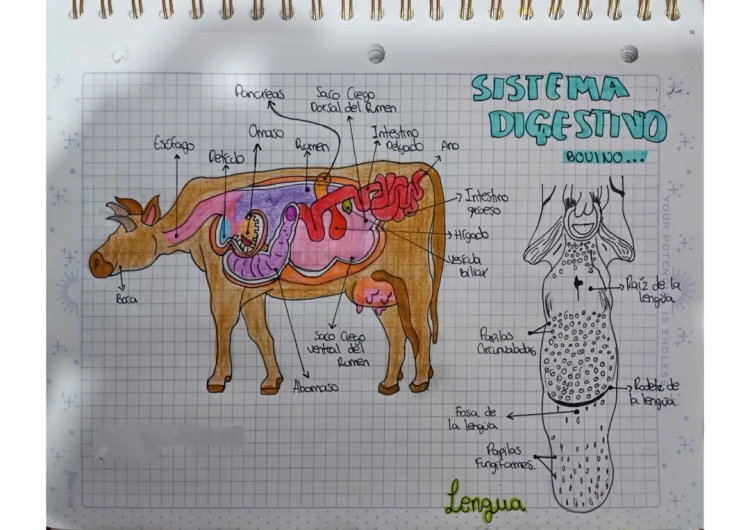 SISTEMA
DIGESTIVO
BOVINO...
Pancreas
Saco Ciego
Dorsal del Rumen
Esófago
Omaso
Rumen
Intestino
Delgado
Ano
Intestino
grueso
Hígado
Vesícula
Biliar
Boca
Saco Ciego
ventral del
Rumen
Abomaso
Raíz de la
lengua
Papilas
Circunvaladas
Rodete de
la lengua
Fosa de
la lengua
Papilas
Fungiformes.
Lengua
YOUR POTENTIAL IS ENDLESS